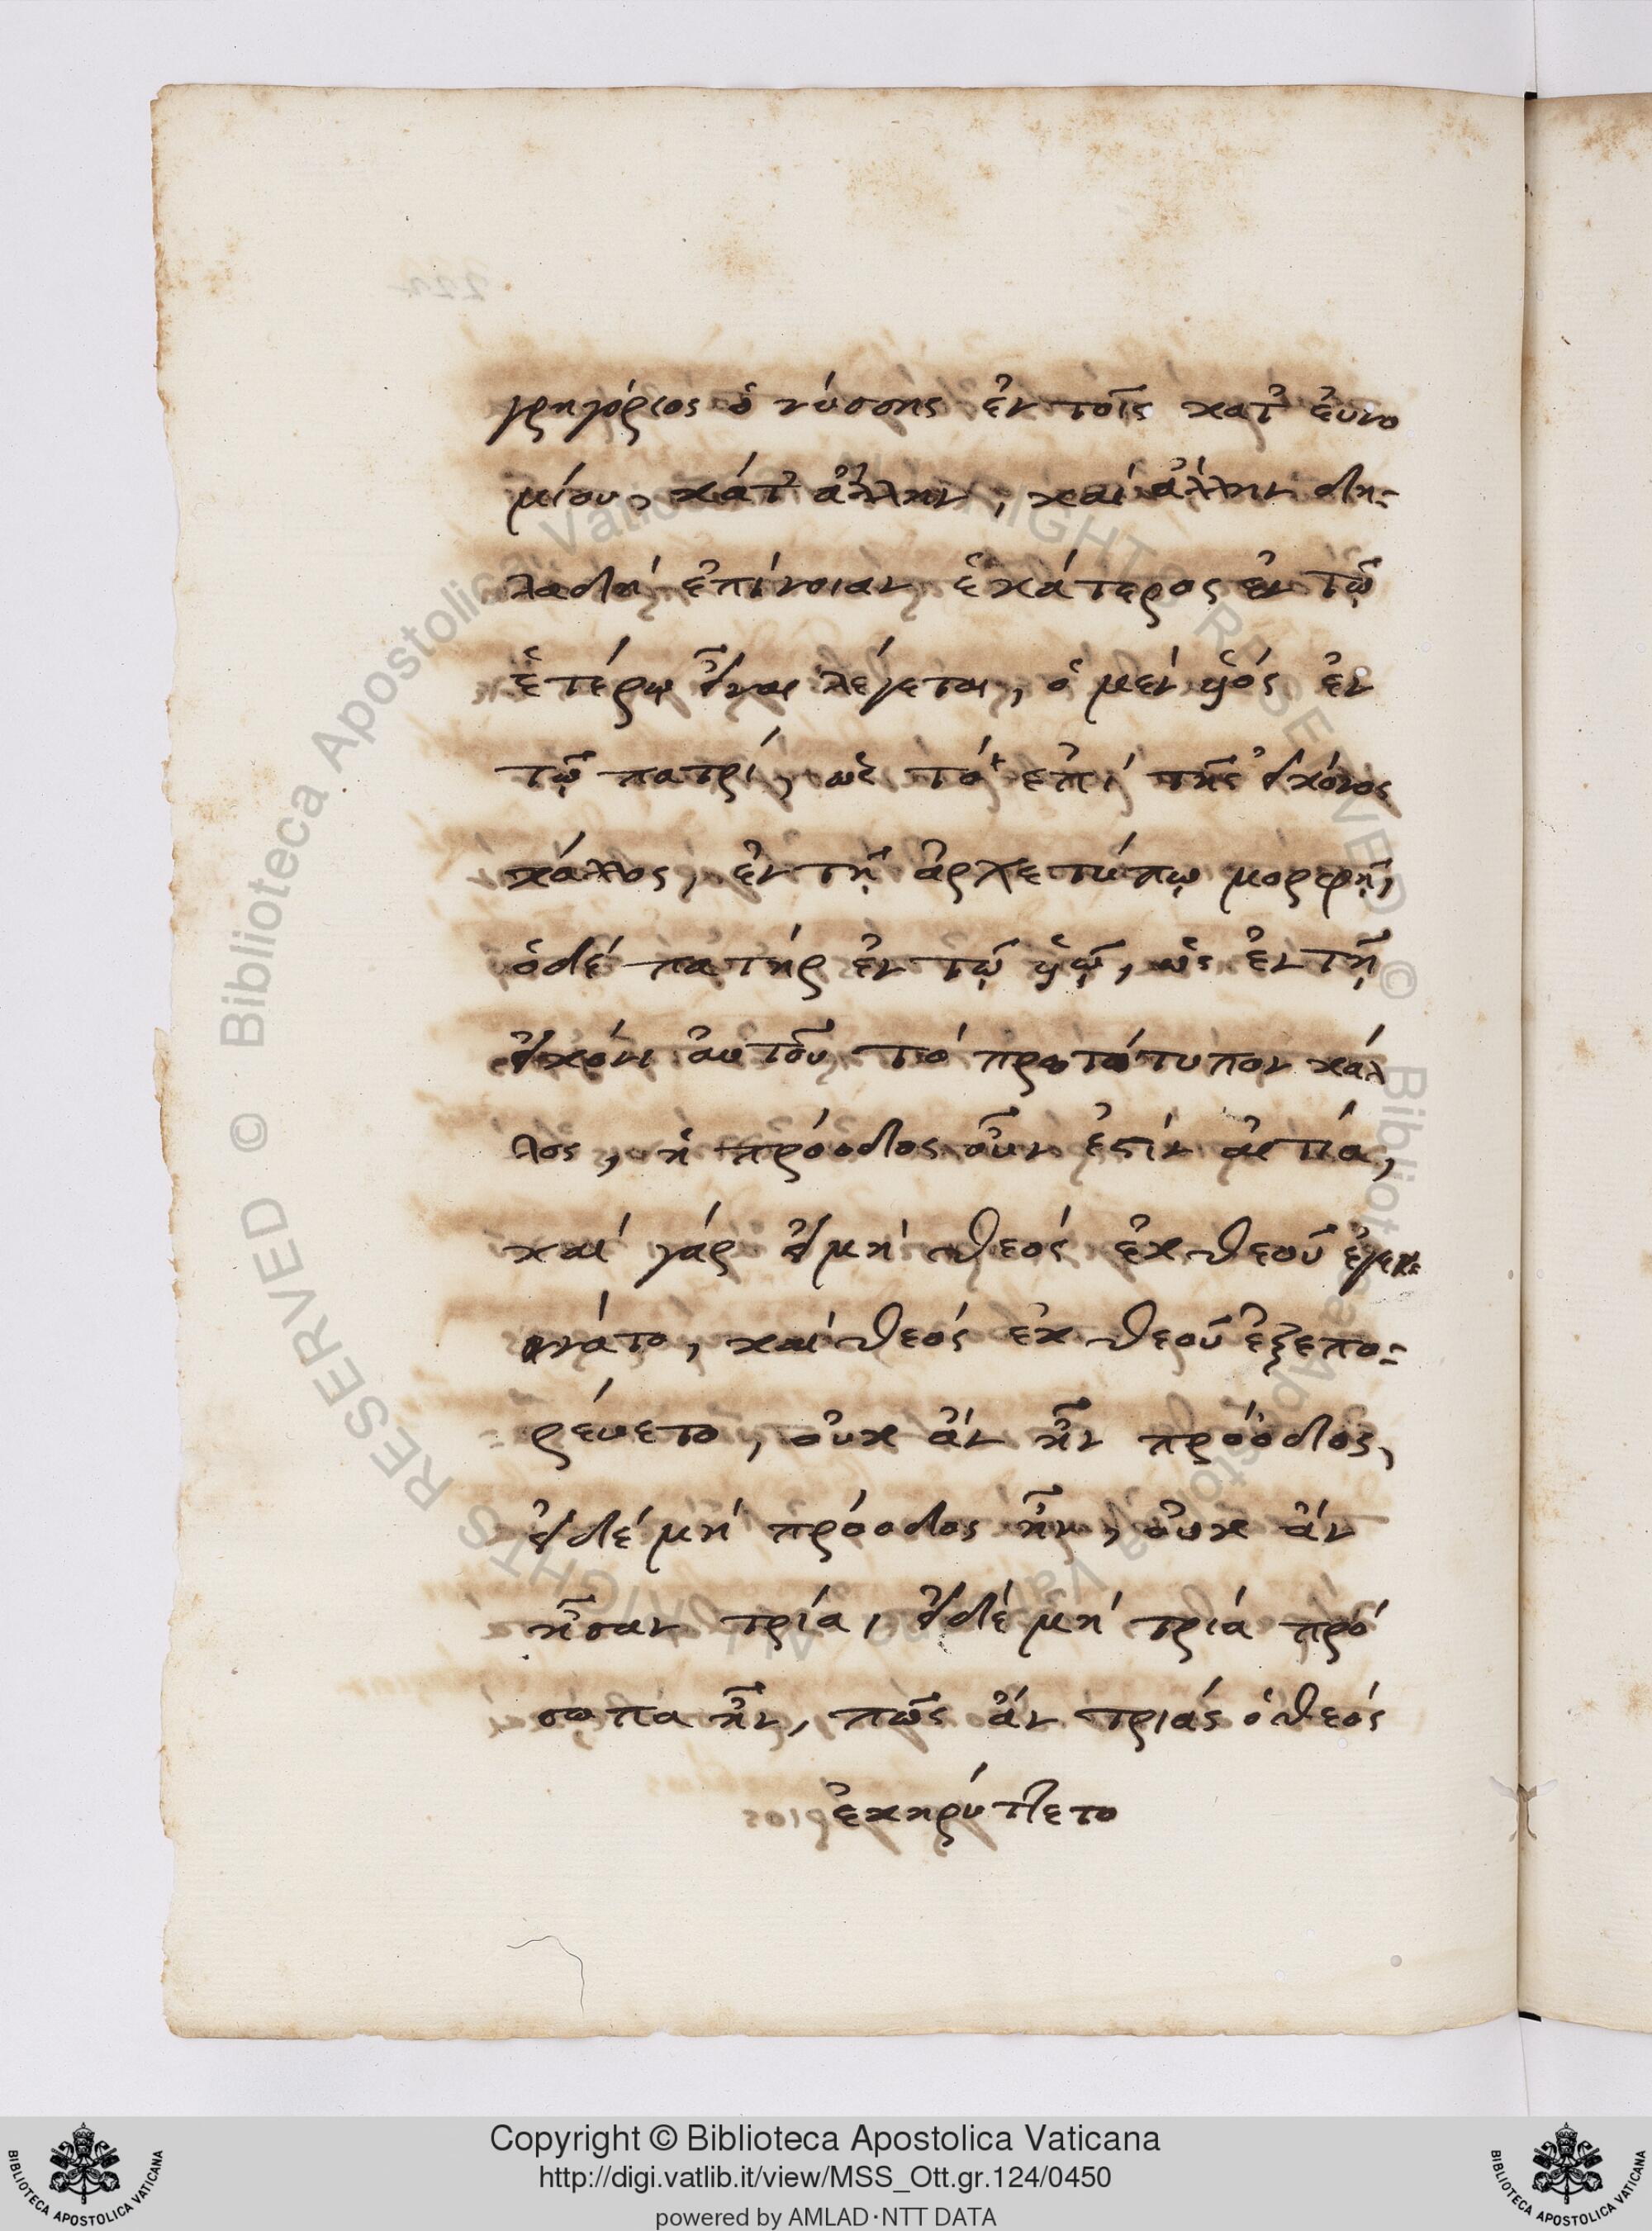 γρηγόριος ὁ νύσσης ἐν τοῖς κατ' ἐυνο
μίου, κάτ' ἄλλην, καὶ ἄλλην δη-
λαδή ἐπίνοιαν ἑκάτερος ἐν τῷ
ἑτέρῳ εἶναι λέγεται, ὁ μέν ὑιός ἐν
τῷ πατρί, ὡς τό ἐπί τῆς εἰκόνος
κάλλος, ἐν τῇ ἀρχετύπῳ μορφῇ,
ὁδέ πατήρ ἐν τῷ ὑιῷ, ὡς ἐν τῇ
εἰκόνι ἀυτοῦ τό πρωτότυπον κάλ
λος, ἡ πρόοδος οὖν ἐστίν αἰτία,
καί γάρ εἰ μή θεός ἐκ θεοῦ ἐγεν-
νάτο, καί θεός ἐκ θεοῦ ἐξεπο-
ρέυετο, οὐκ ἄν ἦν πρόοδος,
εἰ δέ μή πρόοδος ἦν, οὐκ ἄν
ἦσαν τρία, εἰ δέ μή τριά πρό
σωπα ἦν, πῶς ἄν τριάς ὁ θεός
ἐκηρύττετο
Copyright © Biblioteca Apostolica Vaticana
http://digi.vatlib.it/view/MSS_Ott.gr.124/0450
powered by AMLAD·NTT DATA
BIBLIOTECA APOSTOLICA VATICANA
BIBLIOTECA APOSTOLICA VATICANA